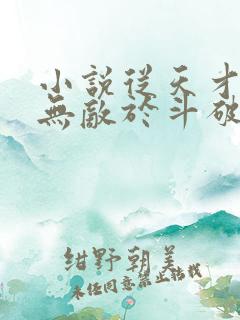 小說從天才
無敵於斗破
紺野朝美
未经同意禁止转载